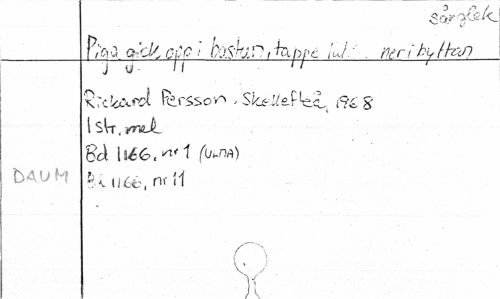 sånglek
Piga gick opp i bastun, tappe neri byttan
Rickard Persson, Skellefteå, 1968
1 str, mel
Bd 1166, nr 1 (ULMA)
DAUM
Bd 1166, nr 11